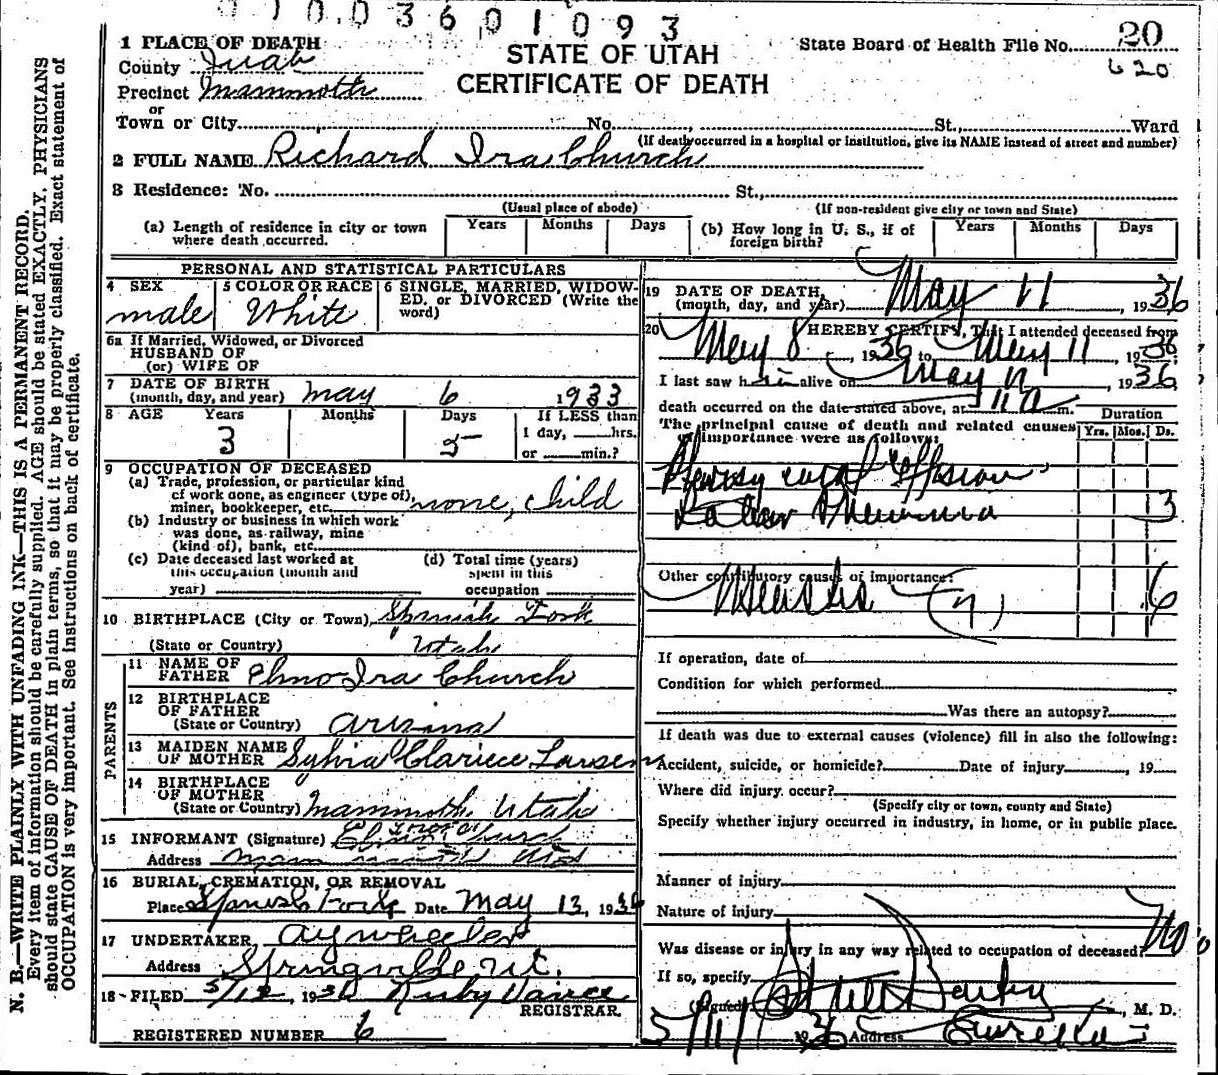 01003601093
1 PLACE OF DEATH
STATE OF UTAH
CERTIFICATE OF DEATH
State Board of Health File No. 20
620
County Juab
Precinct Mammoth
or
Town or City No. St., Ward
(If death occurred in a hospital or institution, give its NAME instead of street and number)
2 FULL NAME Richard Ira Church
3 Residence: No. St.,
(Usual place of abode) (If non-resident give city or town and State)
(a) Length of residence in city or town where death occurred. Years Months Days (b) How long in U. S., if of foreign birth? Years Months Days
PERSONAL AND STATISTICAL PARTICULARS
4 SEX male
5 COLOR OR RACE White
6 SINGLE, MARRIED, WIDOWED, or DIVORCED (Write the word)
6a If Married, Widowed, or Divorced
HUSBAND OF
(or) WIFE OF
7 DATE OF BIRTH
(month, day, and year) May 6 1933
8 AGE Years Months Days If LESS than
3 5 1 day, hrs.
or min.?
9 OCCUPATION OF DECEASED
(a) Trade, profession, or particular kind
of work done, as engineer (type of),
miner, bookkeeper, etc. none, child
(b) Industry or business in which work
was done, as railway, mine
(kind of), bank, etc.
(c) Date deceased last worked at (d) Total time (years)
this occupation (month and spent in this
year) occupation
10 BIRTHPLACE (City or Town) Spanish Fork
(State or Country) Utah
PARENTS
11 NAME OF
FATHER Elmo Ira Church
12 BIRTHPLACE
OF FATHER
(State or Country) Arizona
13 MAIDEN NAME
OF MOTHER Sylvia Clariece Larsen
14 BIRTHPLACE
OF MOTHER
(State or Country) Mammoth, Utah
15 INFORMANT (Signature) Church
Address Mammoth Utah
16 BURIAL, CREMATION, OR REMOVAL
Place Spanish Fork Date May 13, 1936
17 UNDERTAKER A Y Wheeler
Address Springville Ut.
18 FILED 5/12, 1936 Ruby Vance
REGISTRAR
REGISTERED NUMBER 6
19 DATE OF DEATH,
(month, day, and year) May 11 1936
20 I HEREBY CERTIFY, That I attended deceased from
May 8, 1936 to May 11, 1936
I last saw him alive on May 11, 1936
death occurred on the date stated above, at 11 m.
The principal cause of death and related causes
of importance were as follows: Duration
Yrs. Mos. Ds.
Pleurisy Effusion
Lobar Pneumonia 3
Other contributory causes of importance:
Measles (7) 6
If operation, date of
Condition for which performed
Was there an autopsy?
If death was due to external causes (violence) fill in also the following:
Accident, suicide, or homicide? Date of injury , 19
Where did injury occur?
(Specify city or town, county and State)
Specify whether injury occurred in industry, in home, or in public place.
Manner of injury
Nature of injury
Was disease or injury in any way related to occupation of deceased? No
If so, specify
(Signed) , M. D.
5/11/ 1936 Address Eureka
N. B.—WRITE PLAINLY WITH UNFADING INK—THIS IS A PERMANENT RECORD.
Every item of information should be carefully supplied. AGE should be stated EXACTLY. PHYSICIANS
should state CAUSE OF DEATH in plain terms, so that it may be properly classified. Exact statement of
OCCUPATION is very important. See instructions on back of certificate.